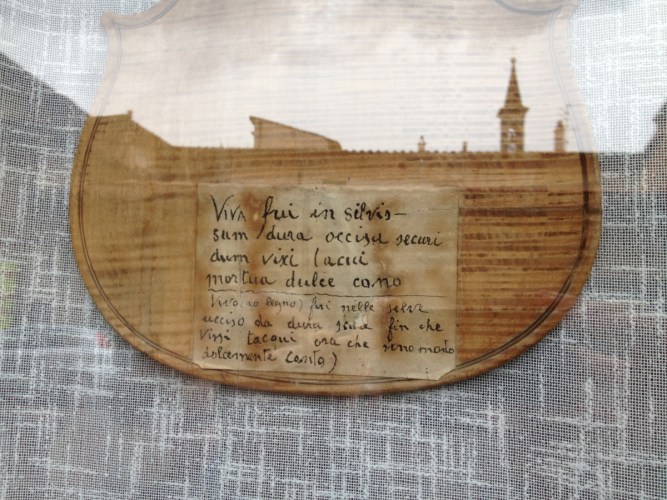 VIVA fui in silvis –
sum dura occisa securi
dum vixi tacui
mortua dulce cano
Vivo (io legno) fui nelle selve
ucciso da dura scure fin che
vissi tacqui ora che sono morto
dolcemente canto)